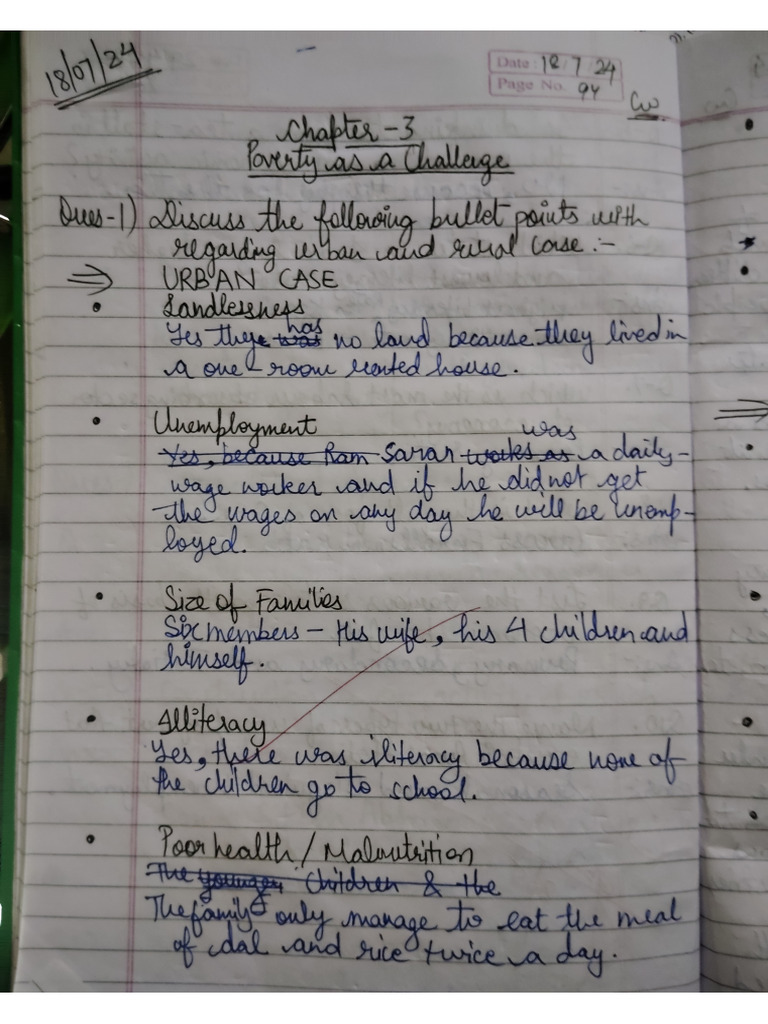 18/07/24
Date: 18/7/24
Page No. 94
Cw
Chapter-3
Poverty as a Challenge
Ques-1) Discuss the following bullet points with
regarding urban and rural case :-
⇒ URBAN CASE
• Landlessness
Yes they has no land because they lived in
a one-room rented house.
• Unemployment
Yes, because Ram Saran works as was a daily-
wage worker and if he did not get
the wages on any day he will be unemp-
loyed.
• Size of Families
Six members - His wife, his 4 children and
himself.
• Illiteracy
Yes, there was iliteracy because none of
the children go to school.
• Poor health / Malnutrition
The younger children & the
The family only manage to eat the meal
of dal and rice twice a day.